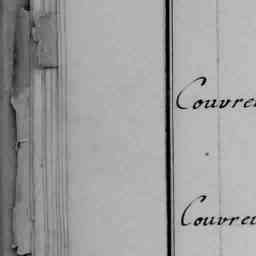 Couvre
Couvre